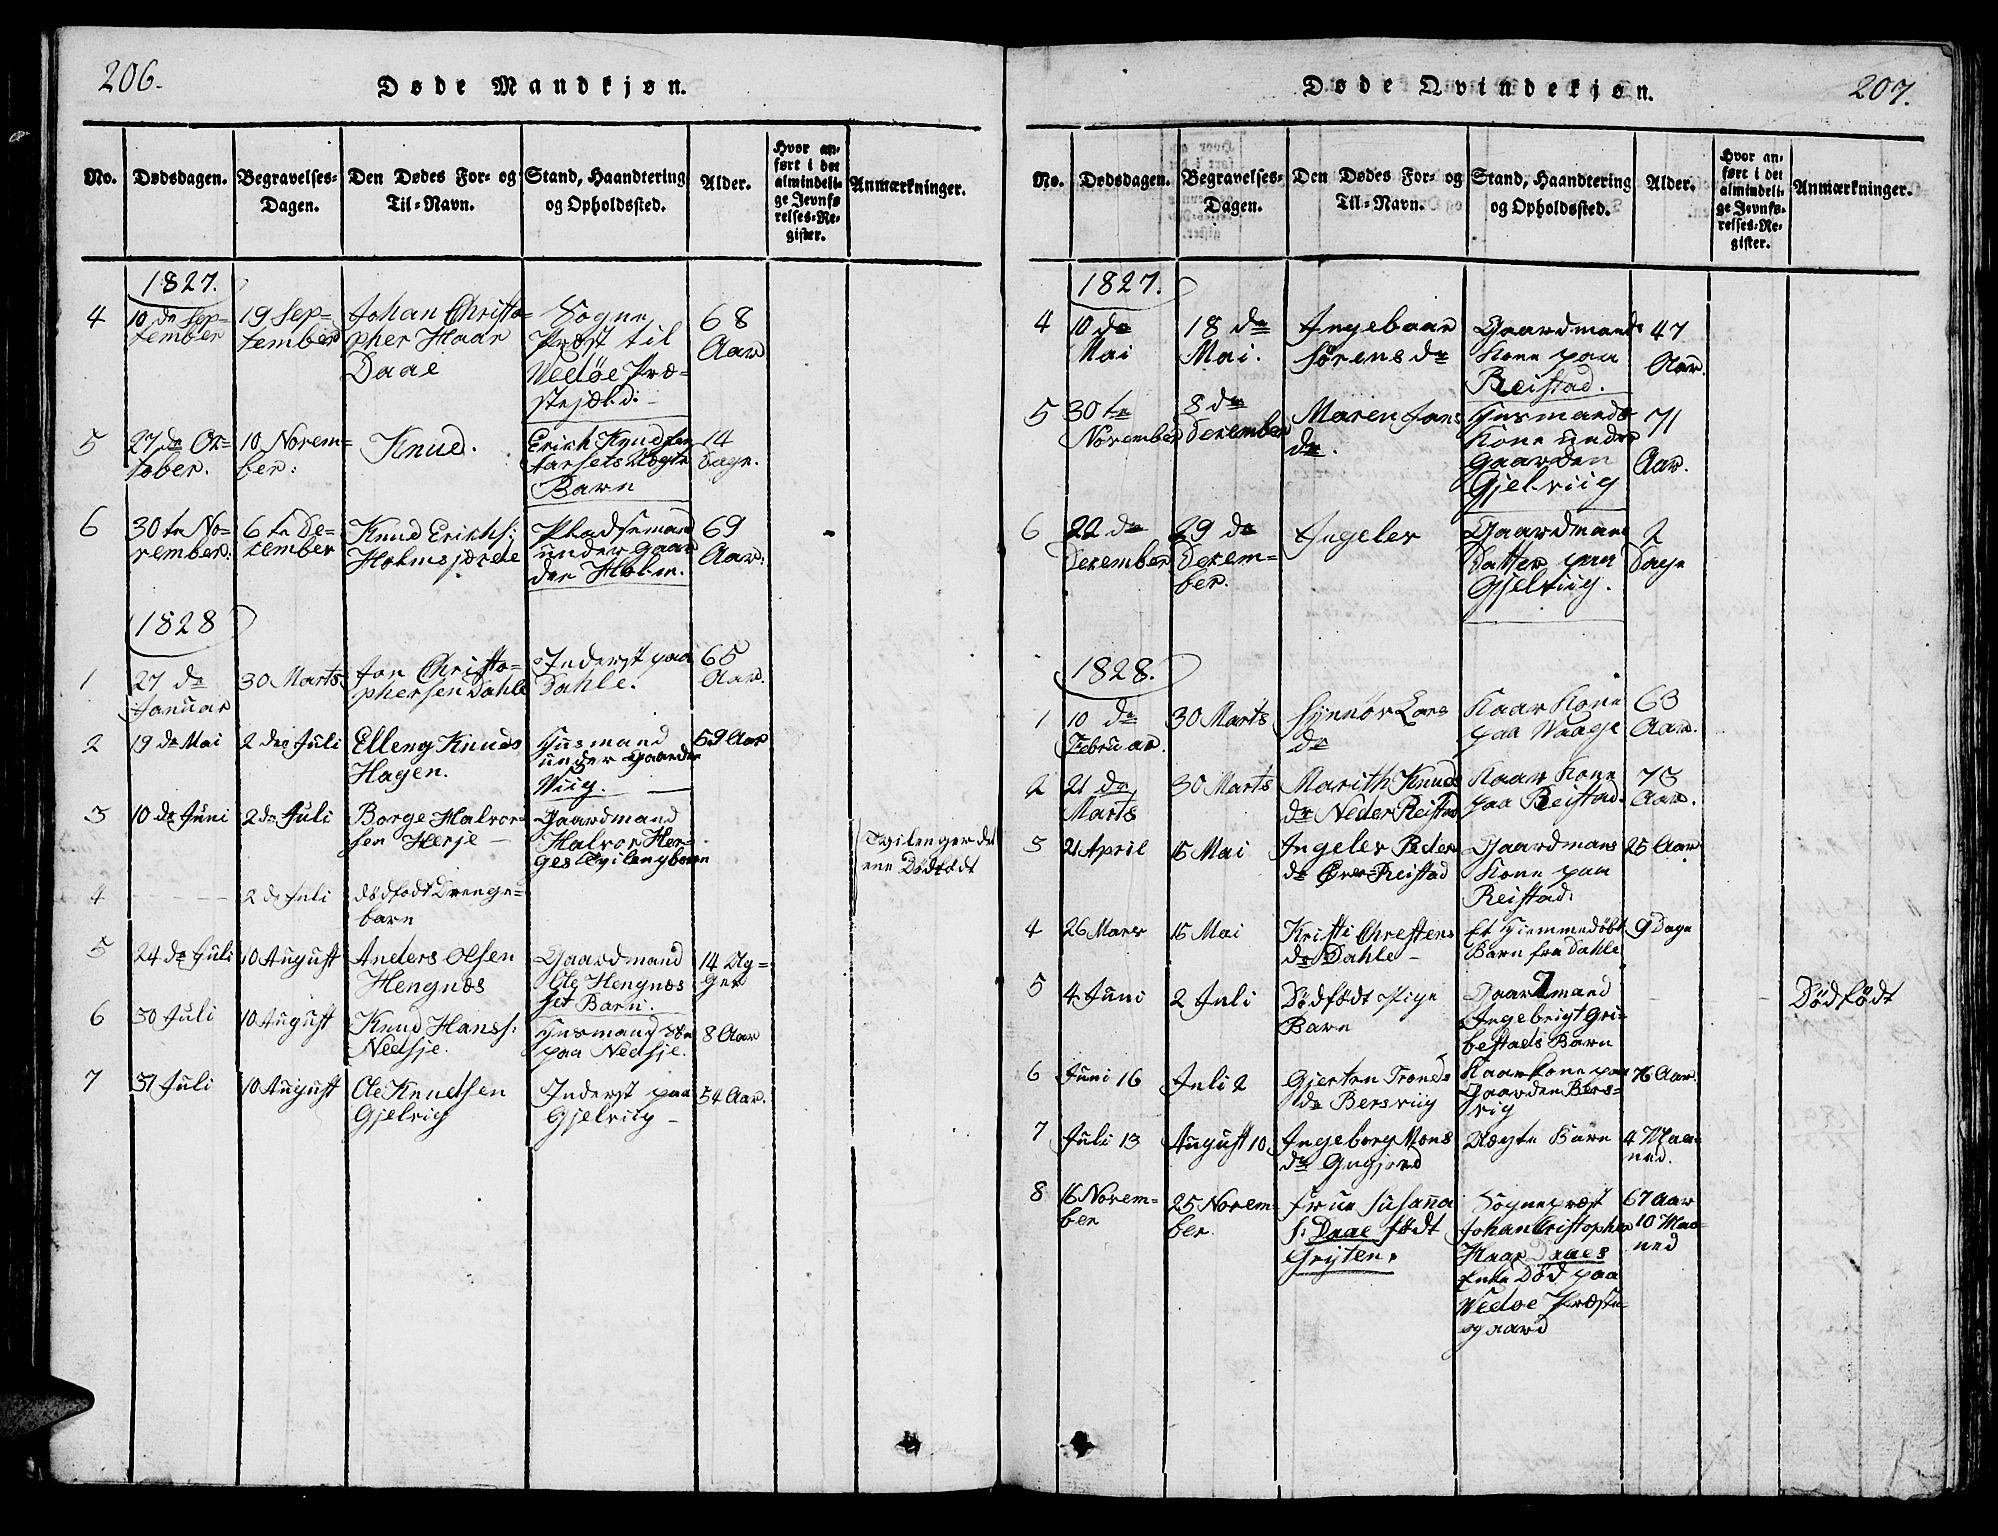 206.
Døde Mandkjøn.
No.
Dødsdagen.
Begravelses-
Dagen.
Den Dødes For- og
Til-Navn.
Stand, Haandtering
og Opholdssted.
Alder.
Hvor an-
ført i det
almindeli-
ge Jevnfø-
relses-Re-
gister.
Anmærkninger.
1827.
4
10 de Sep-
tember
19 Sep-
tember
Johan Christo-
pher Haar
Daae
Sogne
Præst til
Vedøe Præ-
stejæld:
68
Aar
5
27 de Oc-
tober.
10 Novem-
ber:
Knud.
Erich Knudsen
Barn
14
Dage.
6
30 te No-
vember:
6 te De-
cember
Knud Erichs:
Holmsjorde
Pladsemand
under Gaar
den Holm.
69
Aar:
1828
1
27 de
Januar
30 Marts
Jon Christo-
phersen Dahle
Inderst paa
Dahle.
65
Aar.
2
19 de Mai
2 den Juli
Elleng Knuds
Hagen.
Husmand
under Gaarden
Wiig.
59 Aar
3
10 de Juni
2 de Juli
Borge Halvor-
sen Herje
Gaardmand
Halvor Her-
ges Tvilengbarn
Tvilenger det
ene Dødfødt
4
2 de Juli
dødfødt Drenge-
barn
5
24 de Juli
10 August
Anders Olsen
Hengnæs
Gaardmand
Ole Hengnæs
set Barn.
14 Ug-
ger
6
30 Juli
10 August
Knud Hanss:
Nedsje.
Husmand
paa Nedsje.
8 Aar
7
31 Juli
10 August
Ole Knudsen
Gjelvig
Inderst paa
Gjelviig
54 Aar.
207.
Døde Qvindekjøn.
No.
Dødsdagen.
Begravelses-
Dagen.
Den Dødes For- og
Til-Navn.
Stand, Haandtering
og Opholdssted.
Alder.
Hvor an-
ført i det
almindeli-
ge Jevnfø-
relses-Re-
gister.
Anmærkninger.
1827.
4
10 de
Mai
18 de
Mai.
Ingebaar
Sørens dr
Gaardmands
Kone paa
Reistad.
47
Aar.
5
30 te
November
8 de
December
Maren Jons
dr.
Husmands
Kone under
Gaarden
Gjelviig
71
Aar.
6
22 de
December
29 de
Decem-
ber.
Ingelev
Gaardmans
Datter paa
Gjelviig.
2
Dage
1828.
1
10 de
Februar.
30 Marts
Synnøv Lars
dr
Kaar Kone
paa Waage
63
Aar.
2
21 de
Marts
30 Marts
Marith Knuds
dr Neder Reistad
Kaar Kone
paa Reistad.
73
Aar.
3
21 April
15 Mai
Ingelev Peder
dr Øvre Reistad
Gaardmans
Kone paa
Reistad.
25 Aar
4
26 Mars
15 Mai
Kristi Chrestens
dr Dahle
Et Hiemmedøbt
Barn fra Dahle
9 Dage
5
4 Juni
2 Juli
Dødfødt Pige
Barn
Gaardmand
Ingebrigt Gri-
bestads Barn
Dødfødt
6
Juni 16
Juli 2
Gjertru Tronds
dr Bersviig
Kaarkone paa
Gaarden Bers-
vig
76 Aar.
7
Juli 13
August 10
Ingeborg Mons
dr Gugjerd
Uægte Barn
4 Maa-
ned.
8
16 Novem-
ber
25 Novem-
ber
Frue Susanna
S: Daae født
Grÿten.
Sognepræst
Johan Cristopher
Haar Daaes
Enke Død paa
Vedøe Præste-
gaard
67 Aar
10 Maa-
ned